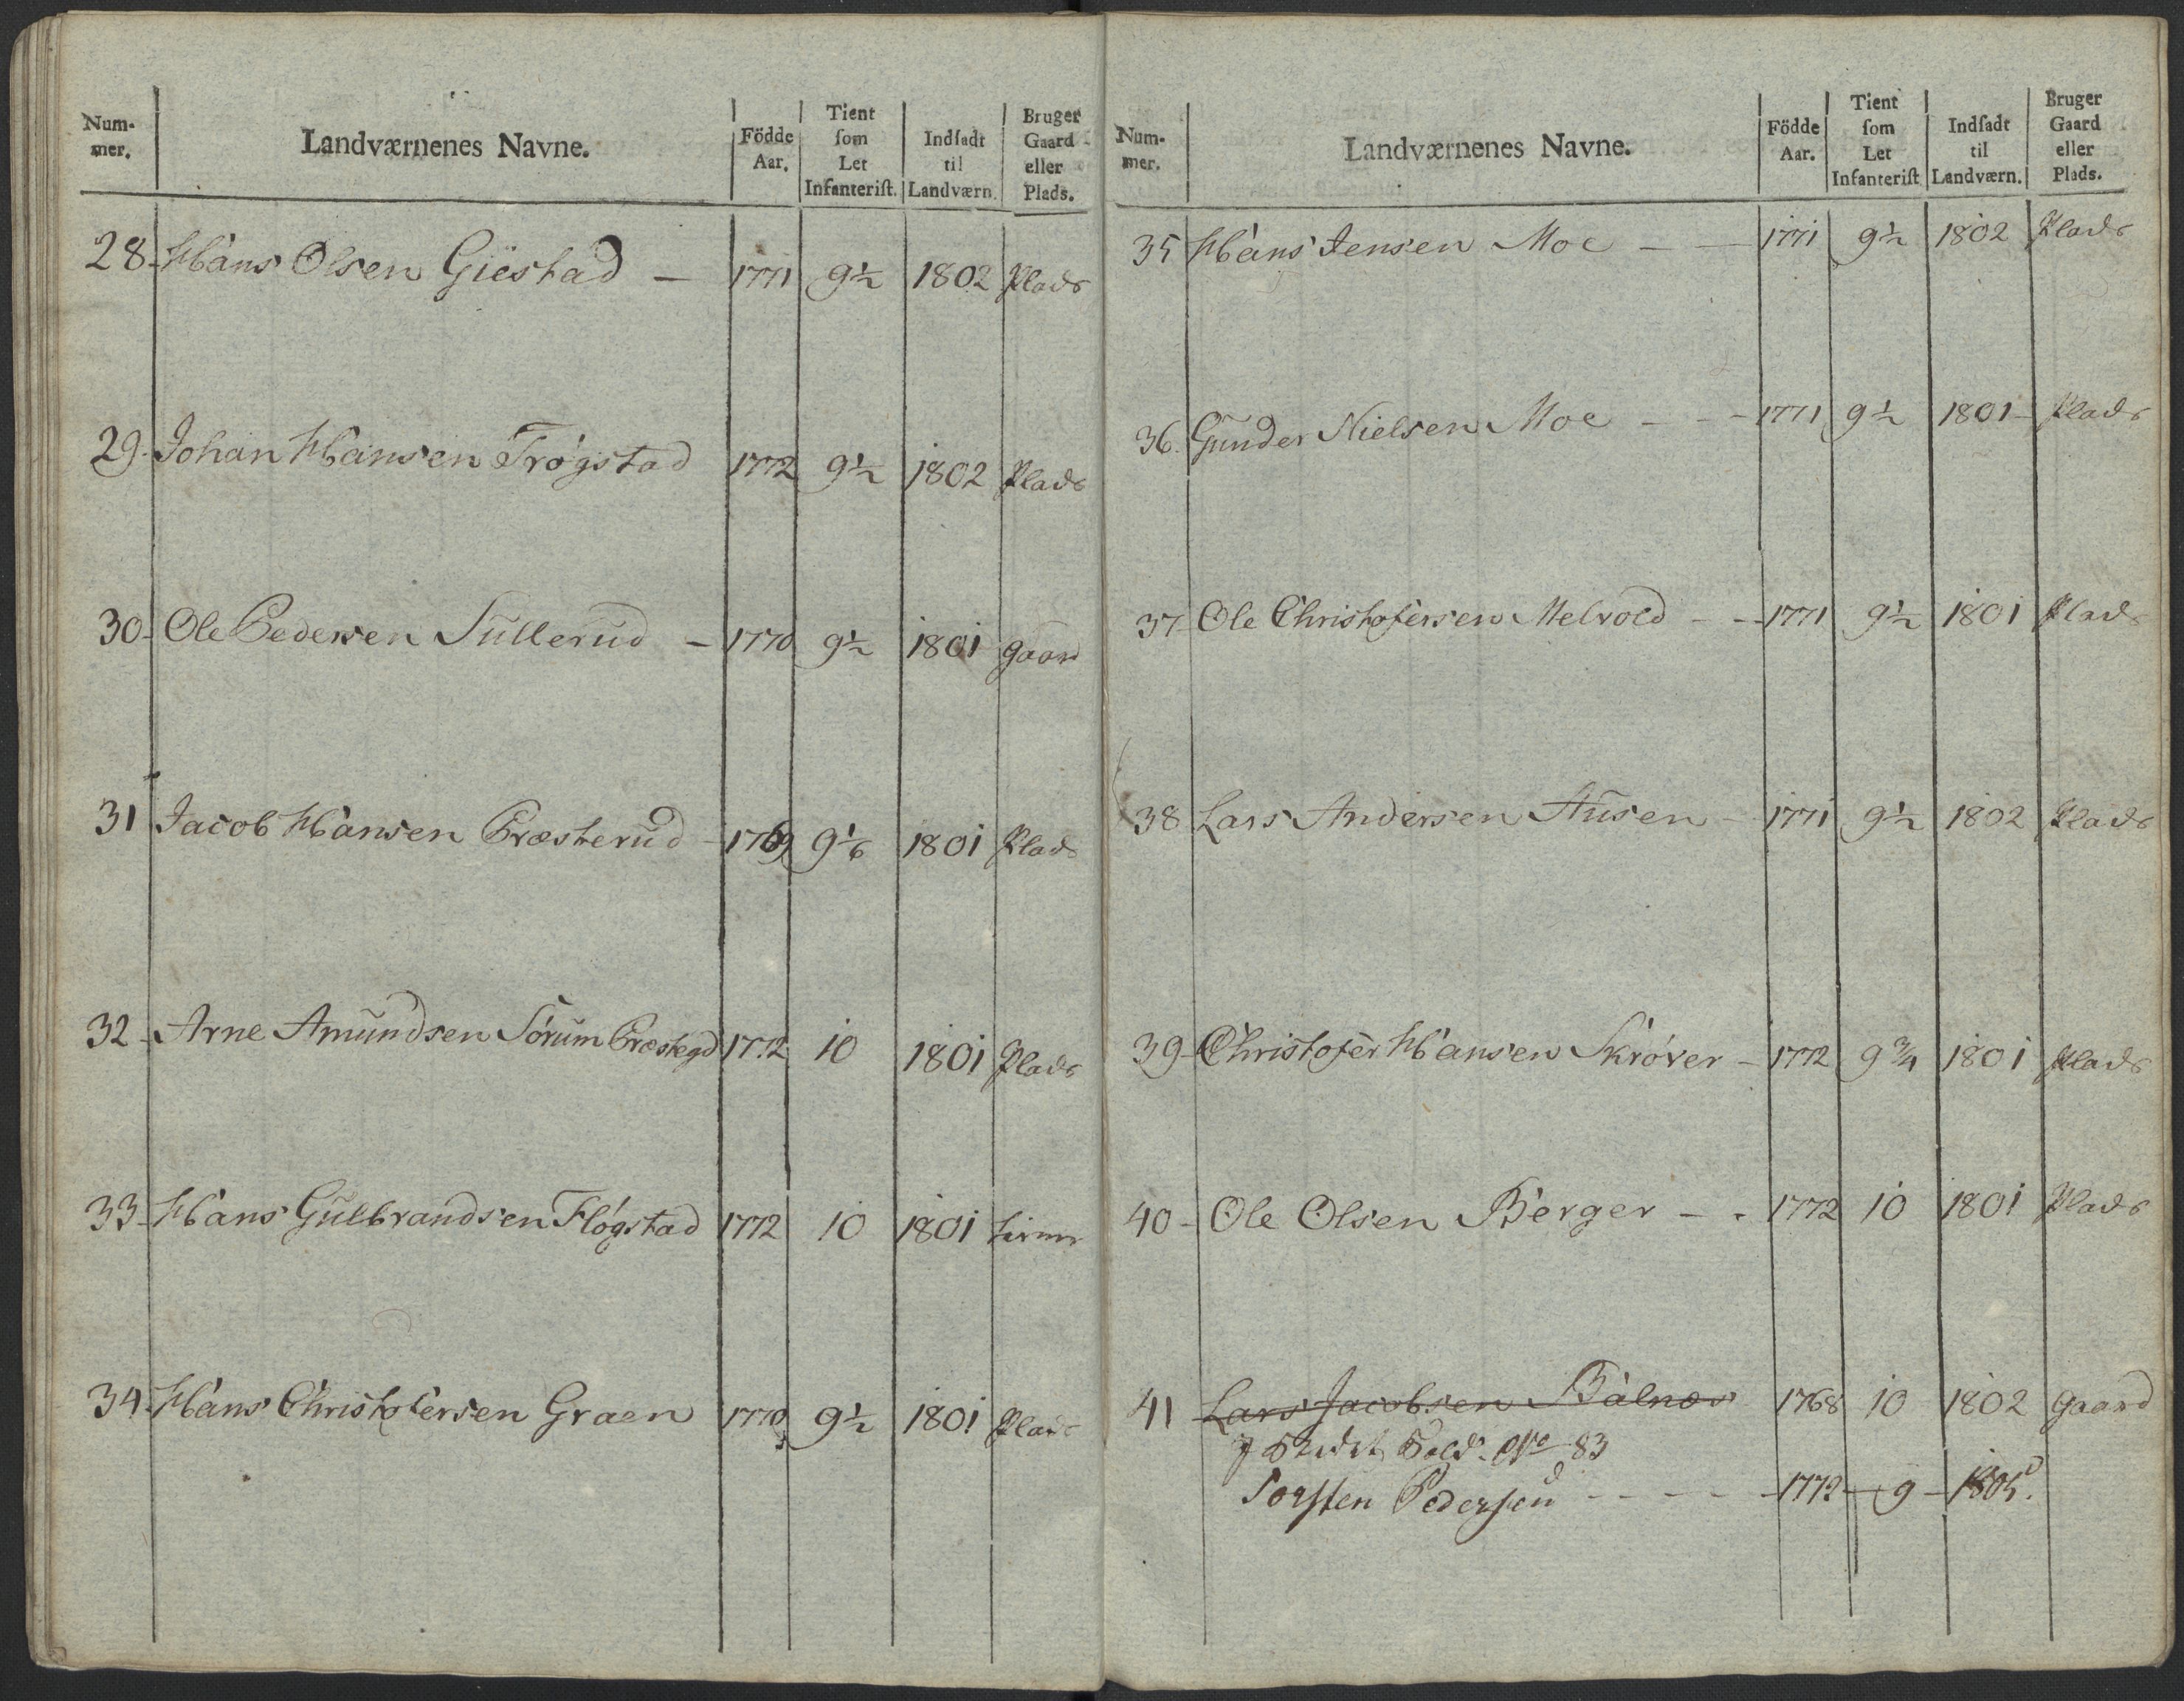 Num-
mer.
Landværnenes Navne.
Födde
Aar.
Tient
som
Let
Infanterist.
Indsadt
til
Landværn.
Bruger
Gaard
eller
Plads.
28 Hans Olsen Giestad — 1771 9½ 1802 Plads
29. Johan Hansen Trøgstad 1772 9½ 1802 Plads
30 Ole Pedersen Sullerud — 1770 9½ 1801 gaard
31 Jacob Hansen Præsterud 1769 9⅙ 1801 Plads
32 Arne Amundsen Sørum Præstegd 1772 10 1801 Plads
33 Hans Gulbrandsen Fløgstad 1772 10 1801
34 Hans Christofersen Graen 1770 9½ 1801 Plads
Num-
mer.
Landværnenes Navne.
Födde
Aar.
Tient
som
Let
Infanterist
Indsadt
til
Landværn.
Bruger
Gaard
eller
Plads.
35 Hans Jensen Moe — — 1771 9½ 1802 Plads
36. Gunder Nielsen Moe - - - 1771 9½ 1801 Plads
37 Ole Christofersen Melvold - - 1771 9½ 1801 Plads
38 Lars Andersen Husen - 1771 9½ 1802 Plads
39 Christofer Hansen Skrøver - 1772 9¾ 1801 Plads
40 - Ole Olsen Berger - - 1772 10 1801 Plads
41 Lars Jacobsen Balnæs 1768 10 1802 gaard
No 83
Torsten Pedersen - - - - 1772 - 9 - 1805.